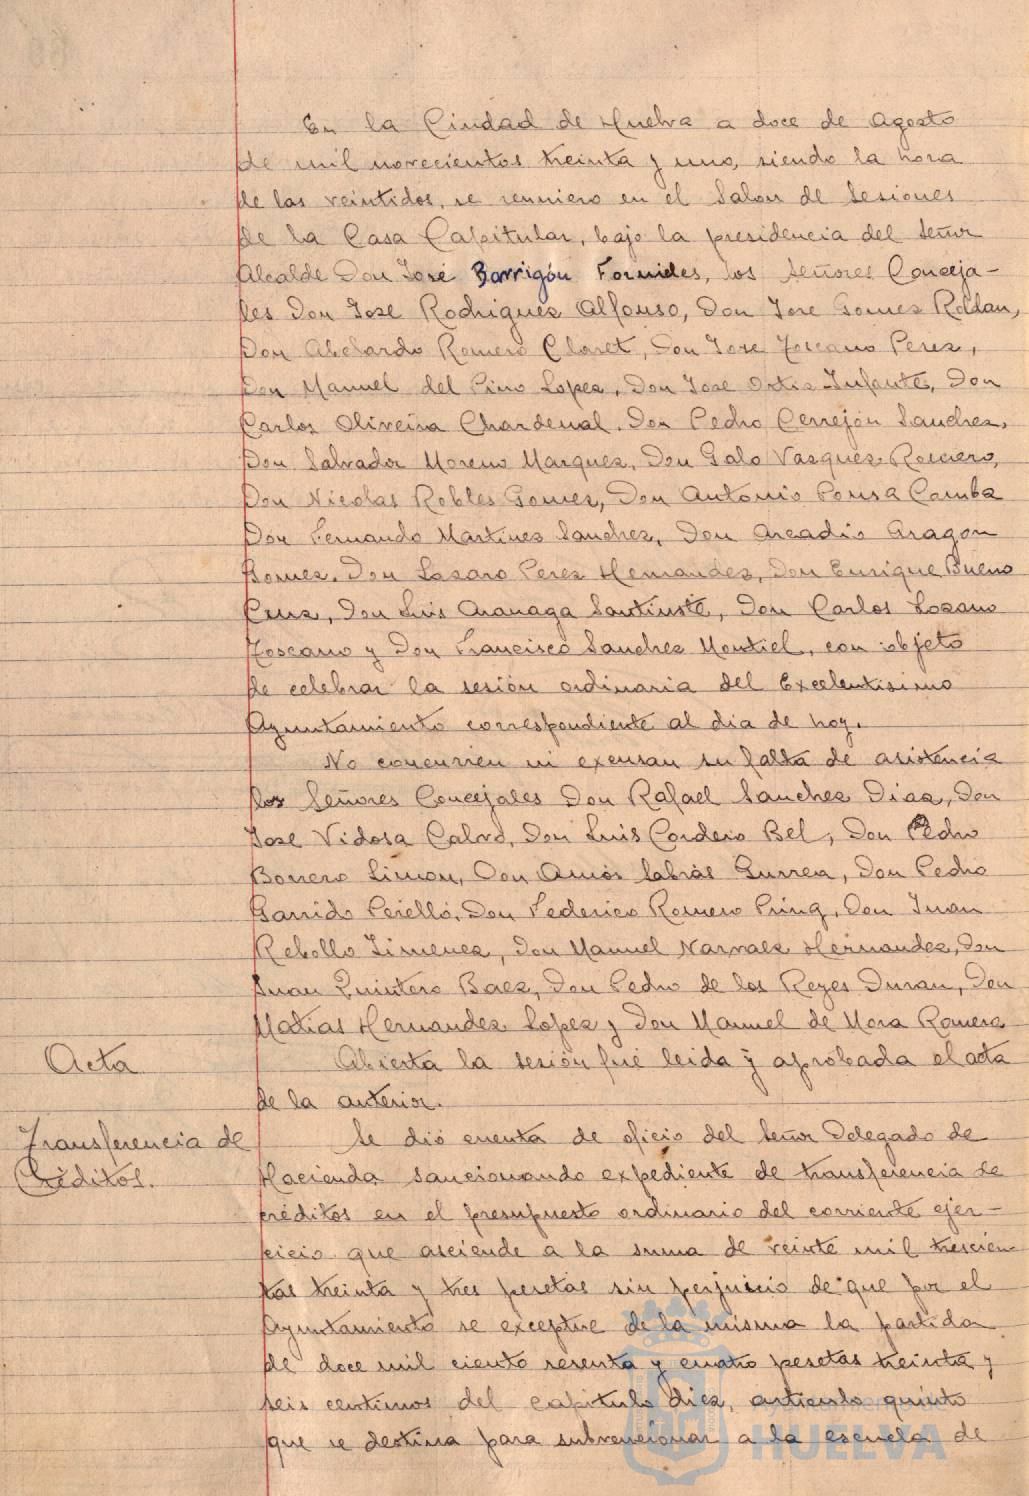 En la Ciudad de Huelva a doce de Agosto
de mil novecientos treinta y uno, siendo la hora
de las veintidos, se reuniero en el Salon de Sesiones
de la Casa Capitular, bajo la presidencia del Señor
Alcalde Don José Barrigón Fornieles, los Señores Conceja-
les Don Jose Rodriguez Alfonso, Don Jose Gomez Roldan,
Don Abelardo Romero Claret, Don Jose Toscano Perez,
Don Manuel del Pino Lopez, Don Jose Ortiz Infante, Don
Carlos Oliveira Chardenal. Don Pedro Cerrejón Sanchez,
Don Salvador Moreno Marquez, Don Galo Vazquez Romero,
Don Nicolas Robles Gomez, Don Antonio Pousa Camba
Don Fernando Martinez Sanchez, Don Arcadio Aragon
Gomez. Don Lazaro Perez Hernandez, Don Enrique Bueno
Cruz, Don Luis Aranaga Santiuste, Don Carlos Lozano
Toscano y Don Francisco Sanchez Montiel, con objeto
de celebrar la sesión ordinaria del Excelentisimo
Ayuntamiento correspondiente al dia de hoy.
No concurrien ni excusan su falta de asistencia
los Señores Concejales Don Rafael Sanchez Diaz, Don
Jose Vidosa Calvo, Don Luis Cordero Bel, Don Pedro
Borrero Limon, Don Amós Sabrás Gurrea, Don Pedro
Garrido Perelló, Don Federico Romero Pring, Don Juan
Rebollo Jimenez, Don Manuel Narvaez Hernandez, Don
Juan Quintero Baez, Don Pedro de los Reyes Duran, Don
Matias Hernandez Lopez y Don Manuel de Mora Romero
Acta
Abierta la sesión fué leida y aprobada el acta
de la anterior.
Transferencia de
Créditos.
Se dió cuenta de oficio del Señor Delegado de
Hacienda sancionando expediente de transferencia de
créditos en el presupuesto ordinario del corriente ejer-
cicio que asciende a la suma de veinte mil trescien-
tas treinta y tres pesetas sin perjuicio de que por el
Ayuntamiento se exceptue de la misma la partida
de doce mil ciento sesenta y cuatro pesetas treinta y
seis centimos del capitulo diez, articulo quinto
que se destina para subvencionar a la escuela de
Ayuntamiento de
HUELVA